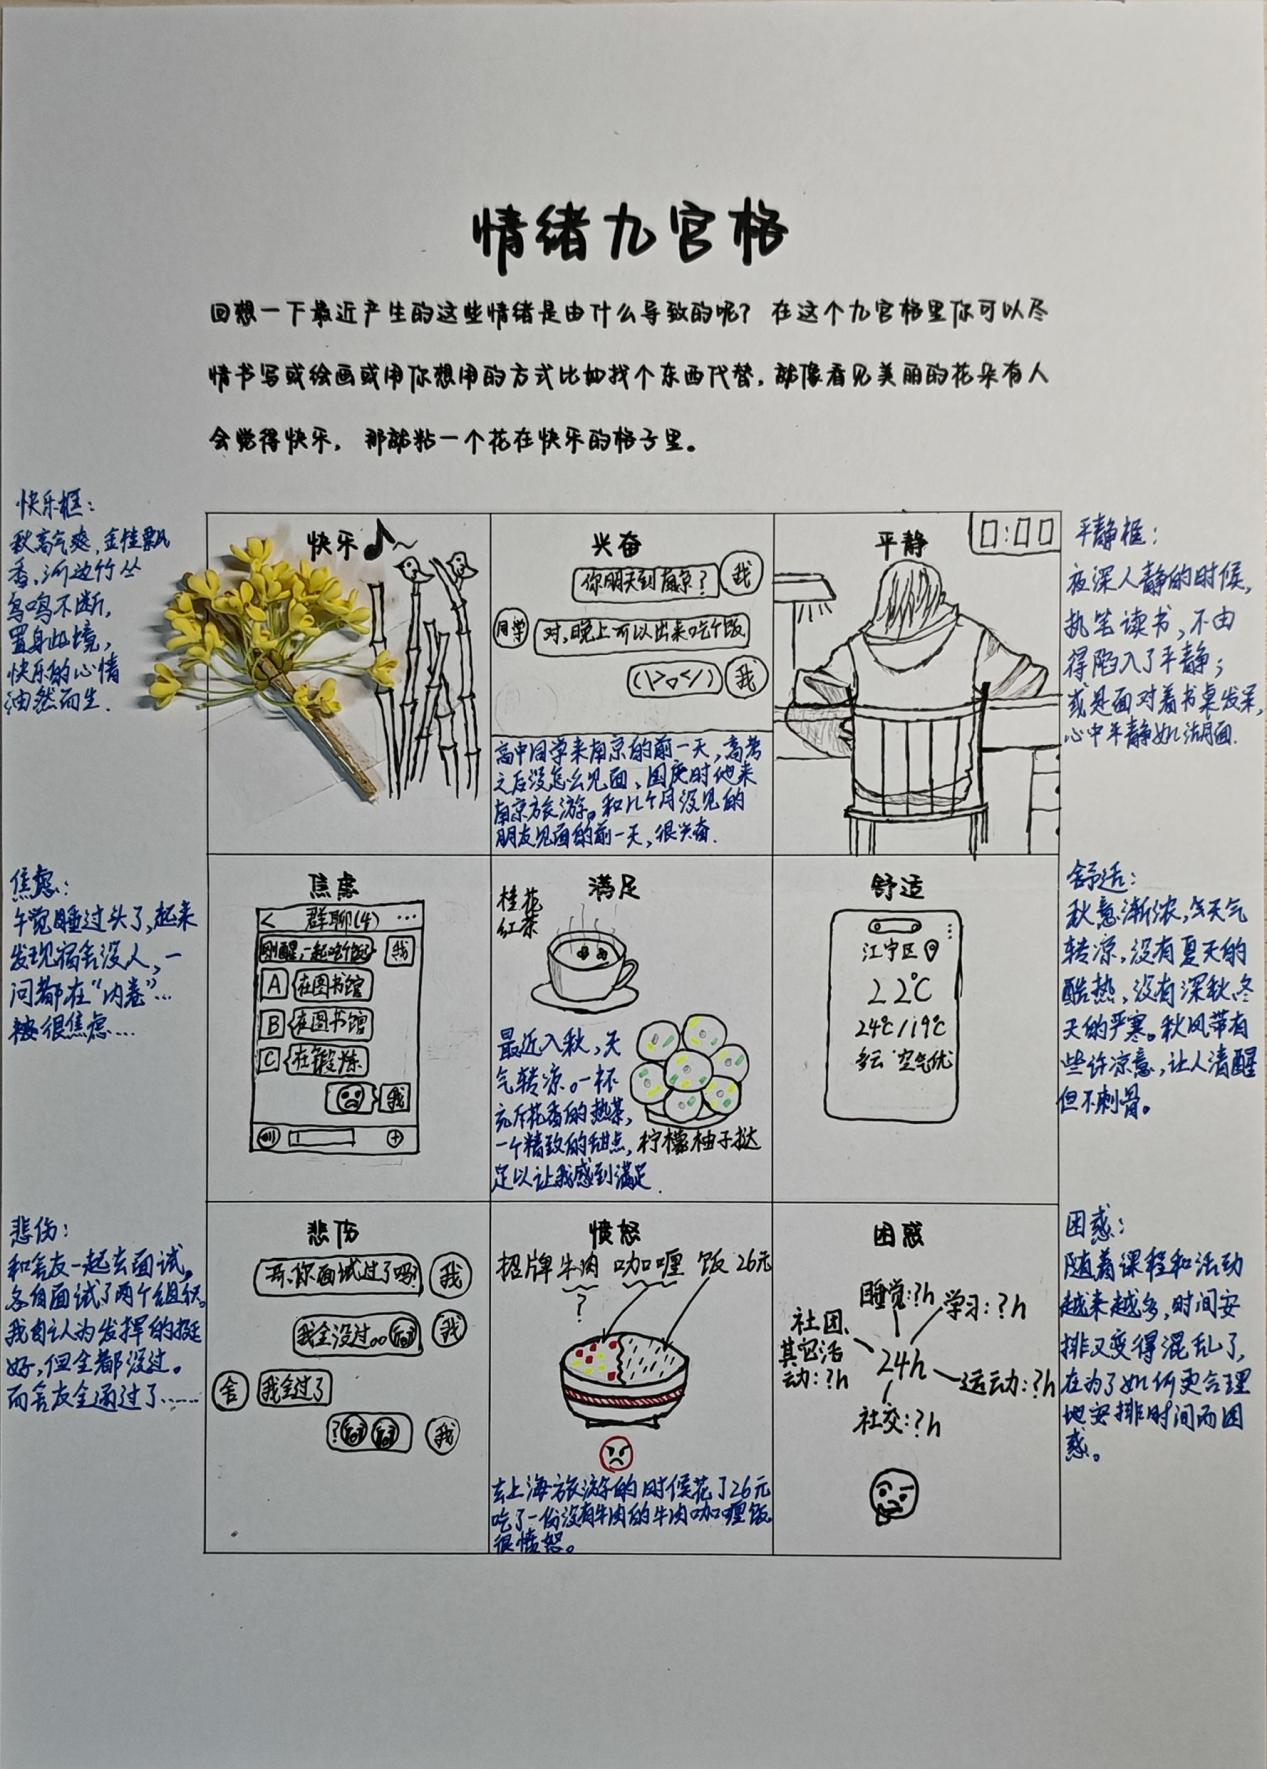 情绪九宫格
回想一下最近产生的这些情绪是由什么导致的呢？在这个九宫格里你可以尽
情书写或绘画或用你想用的方式比如找个东西代替，就像看见美丽的花朵有人
会觉得快乐，那就粘一个花在快乐的格子里。
快乐框：
秋高气爽，金桂飘
香，河边竹丛
鸟鸣不断，
置身此境，
快乐的心情
油然而生．
快乐
兴奋
你明天到南京？
我
同学
对，晚上可以出来吃个饭
(>▽<)
我
高中同学来南京的前一天，高考
之后没怎么见面，国庆时他来
南京旅游。和几个月没见的
朋友见面的前一天，很兴奋．
平静
0:00
平静框：
夜深人静的时候，
执笔读书，不由
得陷入了平静；
或是面对着书桌发呆，
心中平静如湖面．
焦虑：
午觉睡过头了，起来
发现宿舍没人，一
问都在“内卷”…
被很焦虑…
焦虑
< 群聊(4) …
刚醒，一起吃饭
我
A 在图书馆
B 在图书馆
C 在锻炼
我
满足
桂花
红茶
最近入秋，天
气转凉。一杯
充斥花香的热茶，
一个精致的甜点，
足以让我感到满足．
柠檬柚子挞
舒适
江宁区
22℃
24℃/19℃
多云 空气优
舒适：
秋意渐浓，天气
转凉，没有夏天的
酷热，没有深秋、冬
天的严寒。秋风带有
些许凉意，让人清醒
但不刺骨。
悲伤：
和舍友一起去面试，
各自面试了两个组织。
我自认为发挥的挺
好，但全都没过。
而舍友全通过了……
悲伤
你面试过了吗？
我
我全没过。。
我
舍
我全过了
?
我
愤怒
招牌牛肉咖喱饭26元
?
去上海旅游的时候花了26元
吃了一份没有牛肉的牛肉咖喱饭
很愤怒。
困惑
睡觉：?h
学习：?h
社团、
其它活
动：?h
24h
运动：?h
社交：?h
困惑：
随着课程和活动
越来越多，时间安
排又变得混乱了，
在为了如何更合理
地安排时间而困
惑。